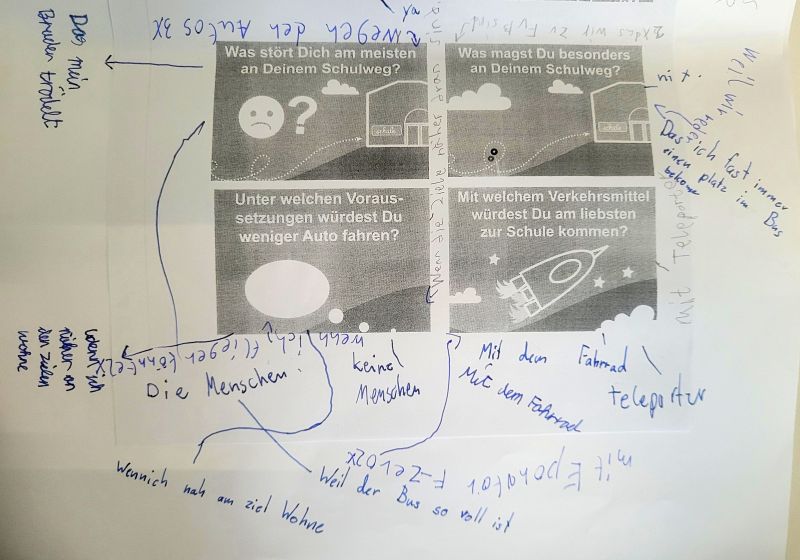 Das mein
Bruder trödelt
Wegen den Autos 3X
Was stört Dich am meisten
an Deinem Schulweg?
?
schule
Was magst Du besonders
an Deinem Schulweg?
schule
nit.
weil wir
Das ich fast immer
einen platz im Bus
bekome
Unter welchen Voraus-
setzungen würdest Du
weniger Auto fahren?
Wenn die Ziele näher dran sind
Mit welchem Verkehrsmittel
würdest Du am liebsten
zur Schule kommen?
mit Teleporter
wenn ich
näher an
den zielen
wohne
wenn ich fliegen könnte 2X
Die Menschen!
keine
Menschen
Mit dem Fahrrad
Mit dem Fahrrad
teleportur
F-Zero 2X
Wennich nah am ziel Wohne
Weil der Bus so voll ist